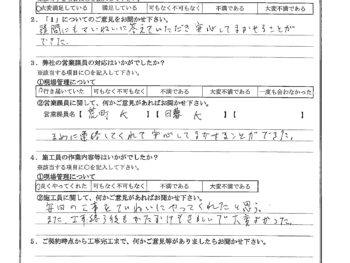 大変満足している 満足している 可もなく不可もなく 不満である 大変不満である
2. 「1」についてのご意見をお聞かせ下さい。
質問にもていねいに答えていただき安心してまかせることが
できた。
3. 弊社の営業課員の対応はいかがでしたか?
※該当する項目に〇を記入して下さい。
①現場管理について
行き届いていた 可もなく不可もなく 不満である 大変不満である 一度も会わなかった
②営業課員に関して、何かご意見があればお聞かせ下さい。
営業課員名【 荒町 氏 】【 日暮 氏 】【 】
まめに連絡してくれて安心してまかせることができた。
4. 施工員の作業内容等はいかがでしたか?
※該当する項目に〇を記入して下さい。
①現場管理について
良くやってくれた 可もなく不可もなく 不満である 大変不満である
②施工員に関して、何かご意見があればお聞かせ下さい。
毎日の工事をていねいにやってくれたと思う。
また、工事終了後もかたづけがきれいで大変よかった。
5. ご契約時点から工事完工まで、何かご意見等がありましたらお聞かせ下さい。